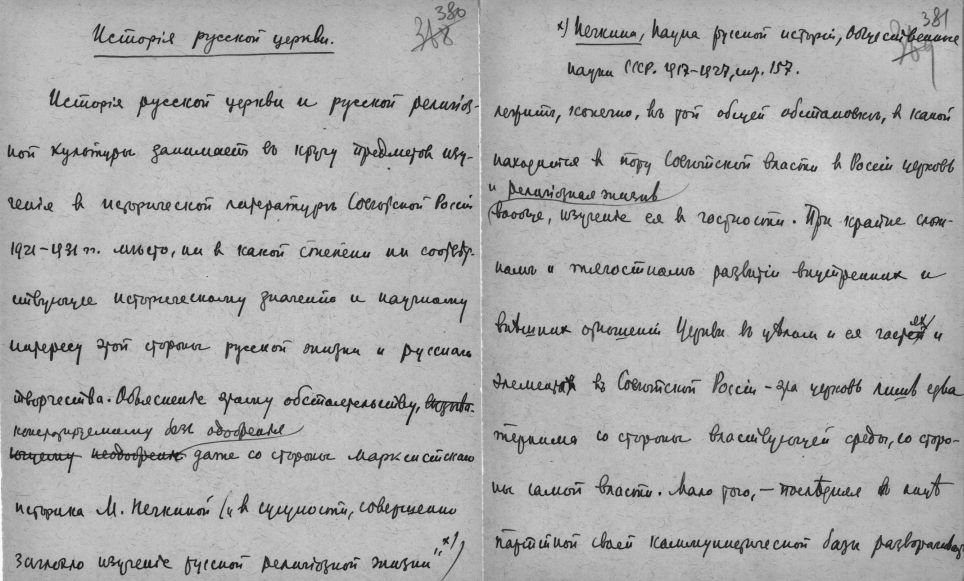 380
368
Исторія русской церкви.
Исторія русской церкви и русской религіоз-
ной культуры занимаетъ въ кругу предметов изу-
ченія в исторической литературѣ Совѣтской Россіи
1921-1931 гг. мѣсто, ни в какой степени ни соотвѣт-
ствующее историческому значенію и научному
интересу этой стороны русской жизни и русскаго
творчества. Объясненіе этому обстоятельству, вызыва-
констатируемому безъ одобренія
ющему неодобреніе даже со стороны марксистскаго
историка М. Нечкиной („в сущности, совершенно
заглохло изученіе русской религіозной жизни" х))
381
369
х) Нечкина, Наука русской исторіи, Общественные
науки СССР. 1917-1927, стр. 157.
лежитъ, конечно, въ той общей обстановкѣ, в какой
находится в пору Совѣтской власти в Россіи церковь
и религіозная жизнь
вообще, изученіе ея в частности. При крайне слож-
номъ и тягостномъ развитіи внутренних и
внѣшних отношеній Церкви въ цѣлом и ея частях и
элементах въ Совѣтской Россіи - эта церковь лишь едва
терпима со стороны властвующей среды, со сторо-
ны самой власти. Мало того, - послѣдняя в лицѣ
партійной своей коммунистической базы разворачивает